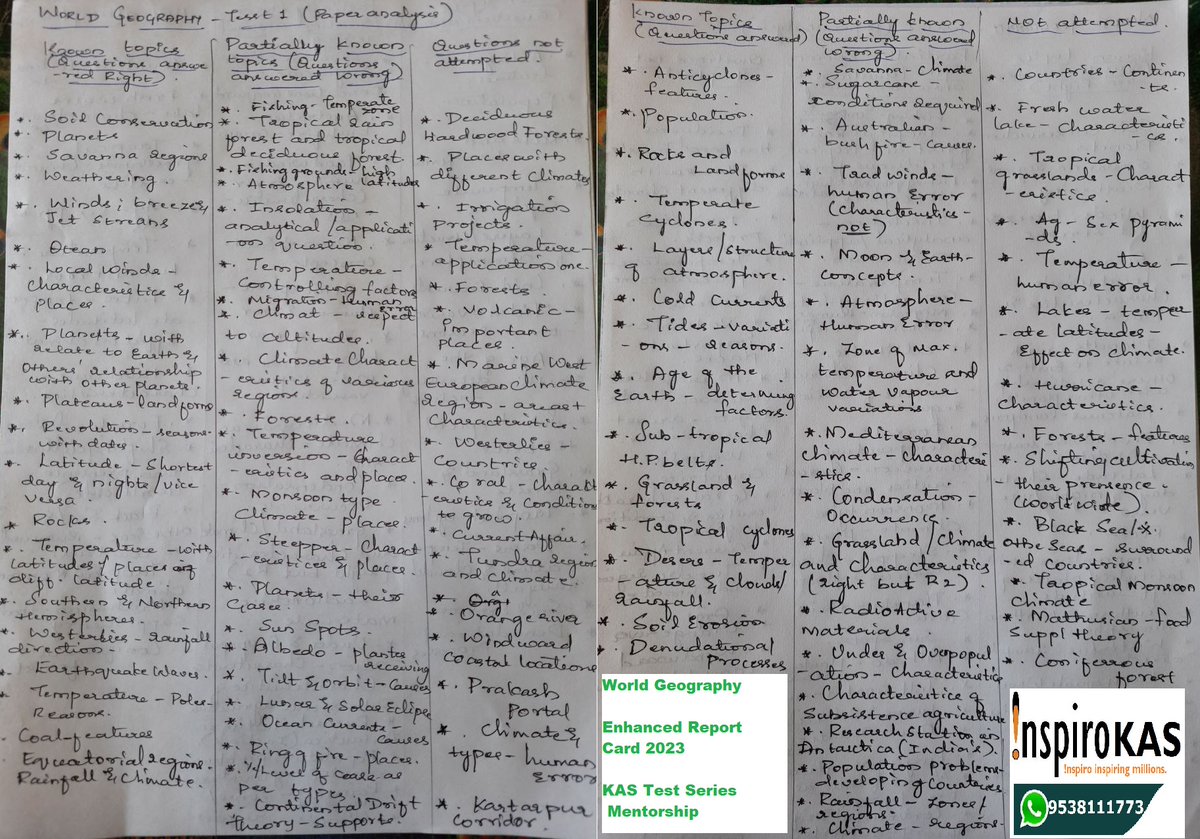 WORLD GEOGRAPHY - Test 1 (Paper analysis)
Known topics
(Questions answe
-red Right).
*. Soil Conservation
*. Planets
*. Savanna regions
*. Weathering.
*. Winds; breeze &
Jet Streams
*. Ocean
*. Local winds -
Characteristics &
places.
*. Planets - with
relate to Earth &
Others relationship
with other planets.
*. Plateaus - landforms
*. Revolution - seasons
with dates.
*. Latitude - Shortest
day & nights / vice
versa.
*. Rocks.
*. Temperature - with
latitudes / places
diff. latitude.
*. Southern & Northern
Hemispheres.
*. Westerlies - rainfall
direction.
*. Earthquake Waves.
*. Temperature - Poles
Reasons.
Coal - features
Equatorial regions.
Rainfall & Climate.
Partially known
topics (Questions
answered wrong)
*. Fishing - Temperate
zone
*. Tropical rain
forest and tropical
deciduous forest.
*. Fishing grounds - high
latitudes
*. Atmosphere
*. Insolation -
analytical / applicati
on question.
*. Temperature -
Controlling factors
*. Migration - Human
Error
*. Climat - respect
to altitudes.
*. Climate Charact
-eristics of various
regions.
*. Forests.
*. Temperature
inversion - Charact
-eristics and places.
*. Monsoon type
Climate - places.
*. Steeppe - Charact
-eristics & places.
*. Planets - their
Gases.
*. Sun Spots.
*. Albedo - plants
receiving
*. Tilt & Orbit - Causes
*. Lunar & Solar Eclipse
*. Ocean Currents -
causes
*. Ring of fire - places.
per types
*. Continental Drift
theory - Supports.
Questions not
attempted.
*. Deciduous
Hardwood Forests.
*. Places with
different Climates
*. Irrigation
projects.
*. Temperature -
application one.
*. Forests.
*. Volcanic -
important
places.
*. Marine West
European Climate
Region - areas &
Characteristics.
*. Westerlies -
Countries.
*. Coral - Charact
-eristics & Condition
to grow.
*. Current Affair.
*. Tundra region
and Climate.
*. Orange river
*. Windward
coastal locations
*. Prakash
Portal
*. Climate &
types - human
Error
*. Kartarpur
Corridor.
Known Topics
(Questions answered)
*. Anticyclones -
features.
*. Population.
*. Rocks and
Landforms
*. Temperate
Cyclones.
*. Layers / structure
of atmosphere.
*. Cold Currents
*. Tides - variati
-ons - reasons.
*. Age of the
Earth - determing
factors.
*. Sub-tropical
H.P. belts.
*. Grassland &
forests
*. Tropical cyclones
*. Desers - Temper
-ature & clouds /
rainfall.
*. Soil Erosion
*. Denudational
Processes
Partially known
(Questions answered
wrong)
*. Savanna - Climate
*. Sugarcane -
conditions required
*. Australian -
bush fire - causes.
*. Trad winds -
human Error
(Characteristics -
not)
*. Moon & Earth -
concepts.
*. Atmosphere -
Human Error
*. Zone of Max.
temperature and
water vapour
variations
*. Mediterranean
Climate - characteri
-stics.
*. Condensation -
Occurrence.
*. Grassland / Climate
and Characteristics
(right but R2)
*. RadioActive
Materials.
*. Under & Overpopul
-ation - Characteristics
*. Characteristics of
Subsistence agriculture
*. Research Station in
Antarctica (India's).
*. Population problems -
developing Countries
*. Rainfall - Zones /
regions.
*. Climate - regions.
NOT attempted.
*. Countries - Continen
ts.
*. Fresh water
lake - Characteristi
-cs.
*. Tropical
grasslands - Charact
-eristics.
*. Ag - Sex pyrami
-ds.
*. Temperature -
human error.
*. Lakes - temper
-ate latitudes -
Effect on climate.
*. Hurricane -
characteristics.
*. Forests - features
*. Shifting cultivation
- their presence.
(World wide).
*. Black Sea /
othe Seas - Surround
-ed Countries.
*. Tropical Monsoon
Climate
*. Mathusian - food
Suppl theory
*. Coniferous
forest
World Geography
Enhanced Report
Card 2023
KAS Test Series
Mentorship
InspiroKAS
!nspiro inspiring millions.
9538111773